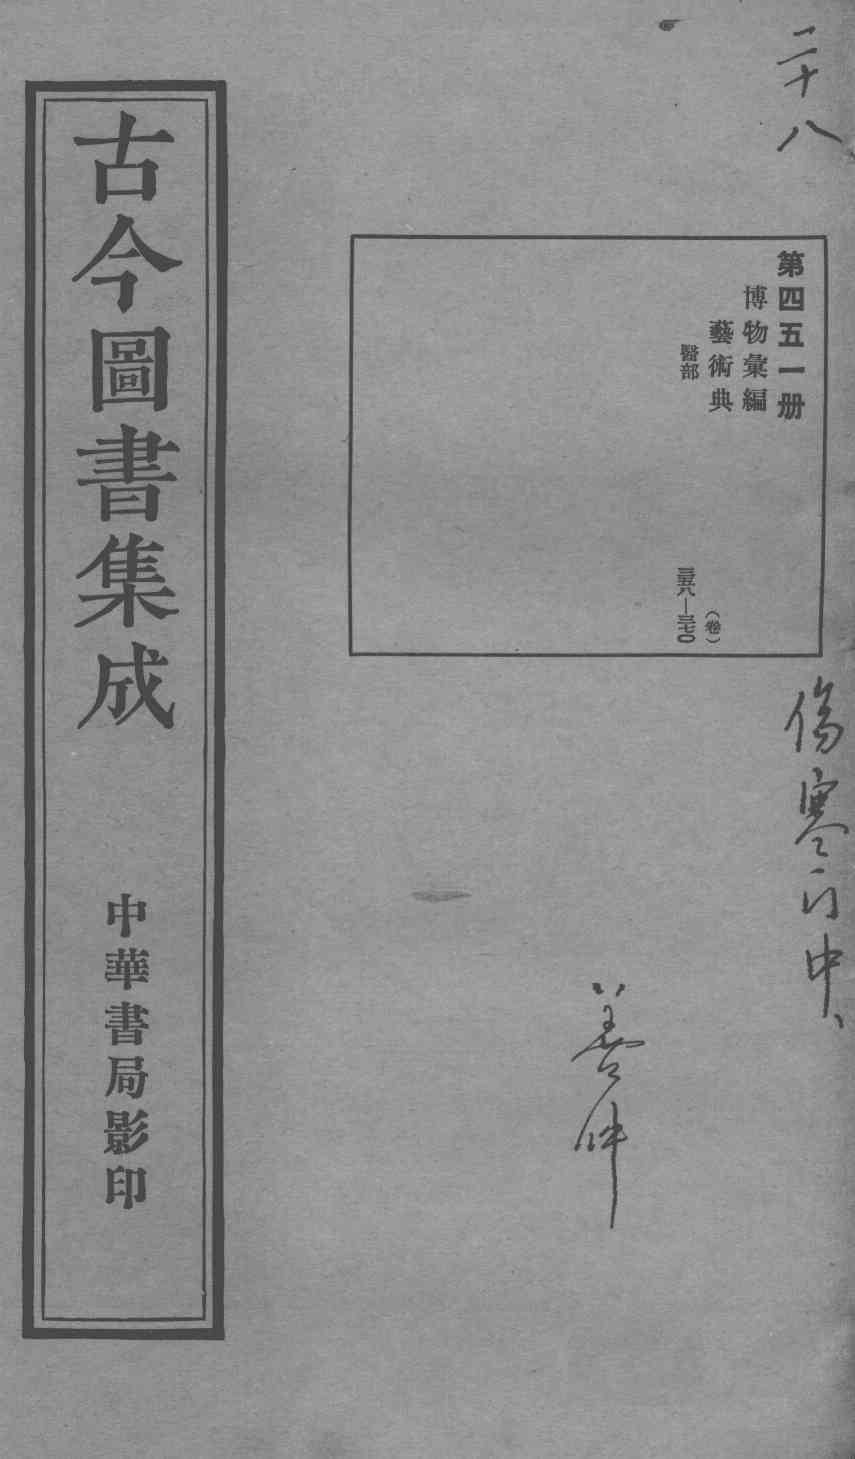 二十八
第四五一册
博物彙編
藝術典
醫部
(卷)
三五八—三七〇
傷寒门中
古今圖書集成
中華書局影印